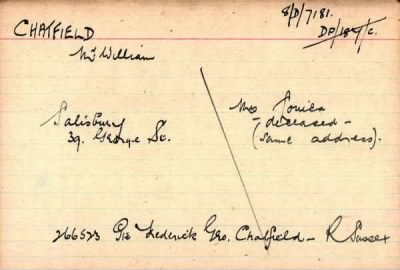 8/D/7181.
CHATFIELD
DP/184/C.
Mr William
Mrs Louisa
Salisbury
- deceased -
39. George St.
(same address).
266523 Pte Frederick Geo. Chatfield - R Sussex